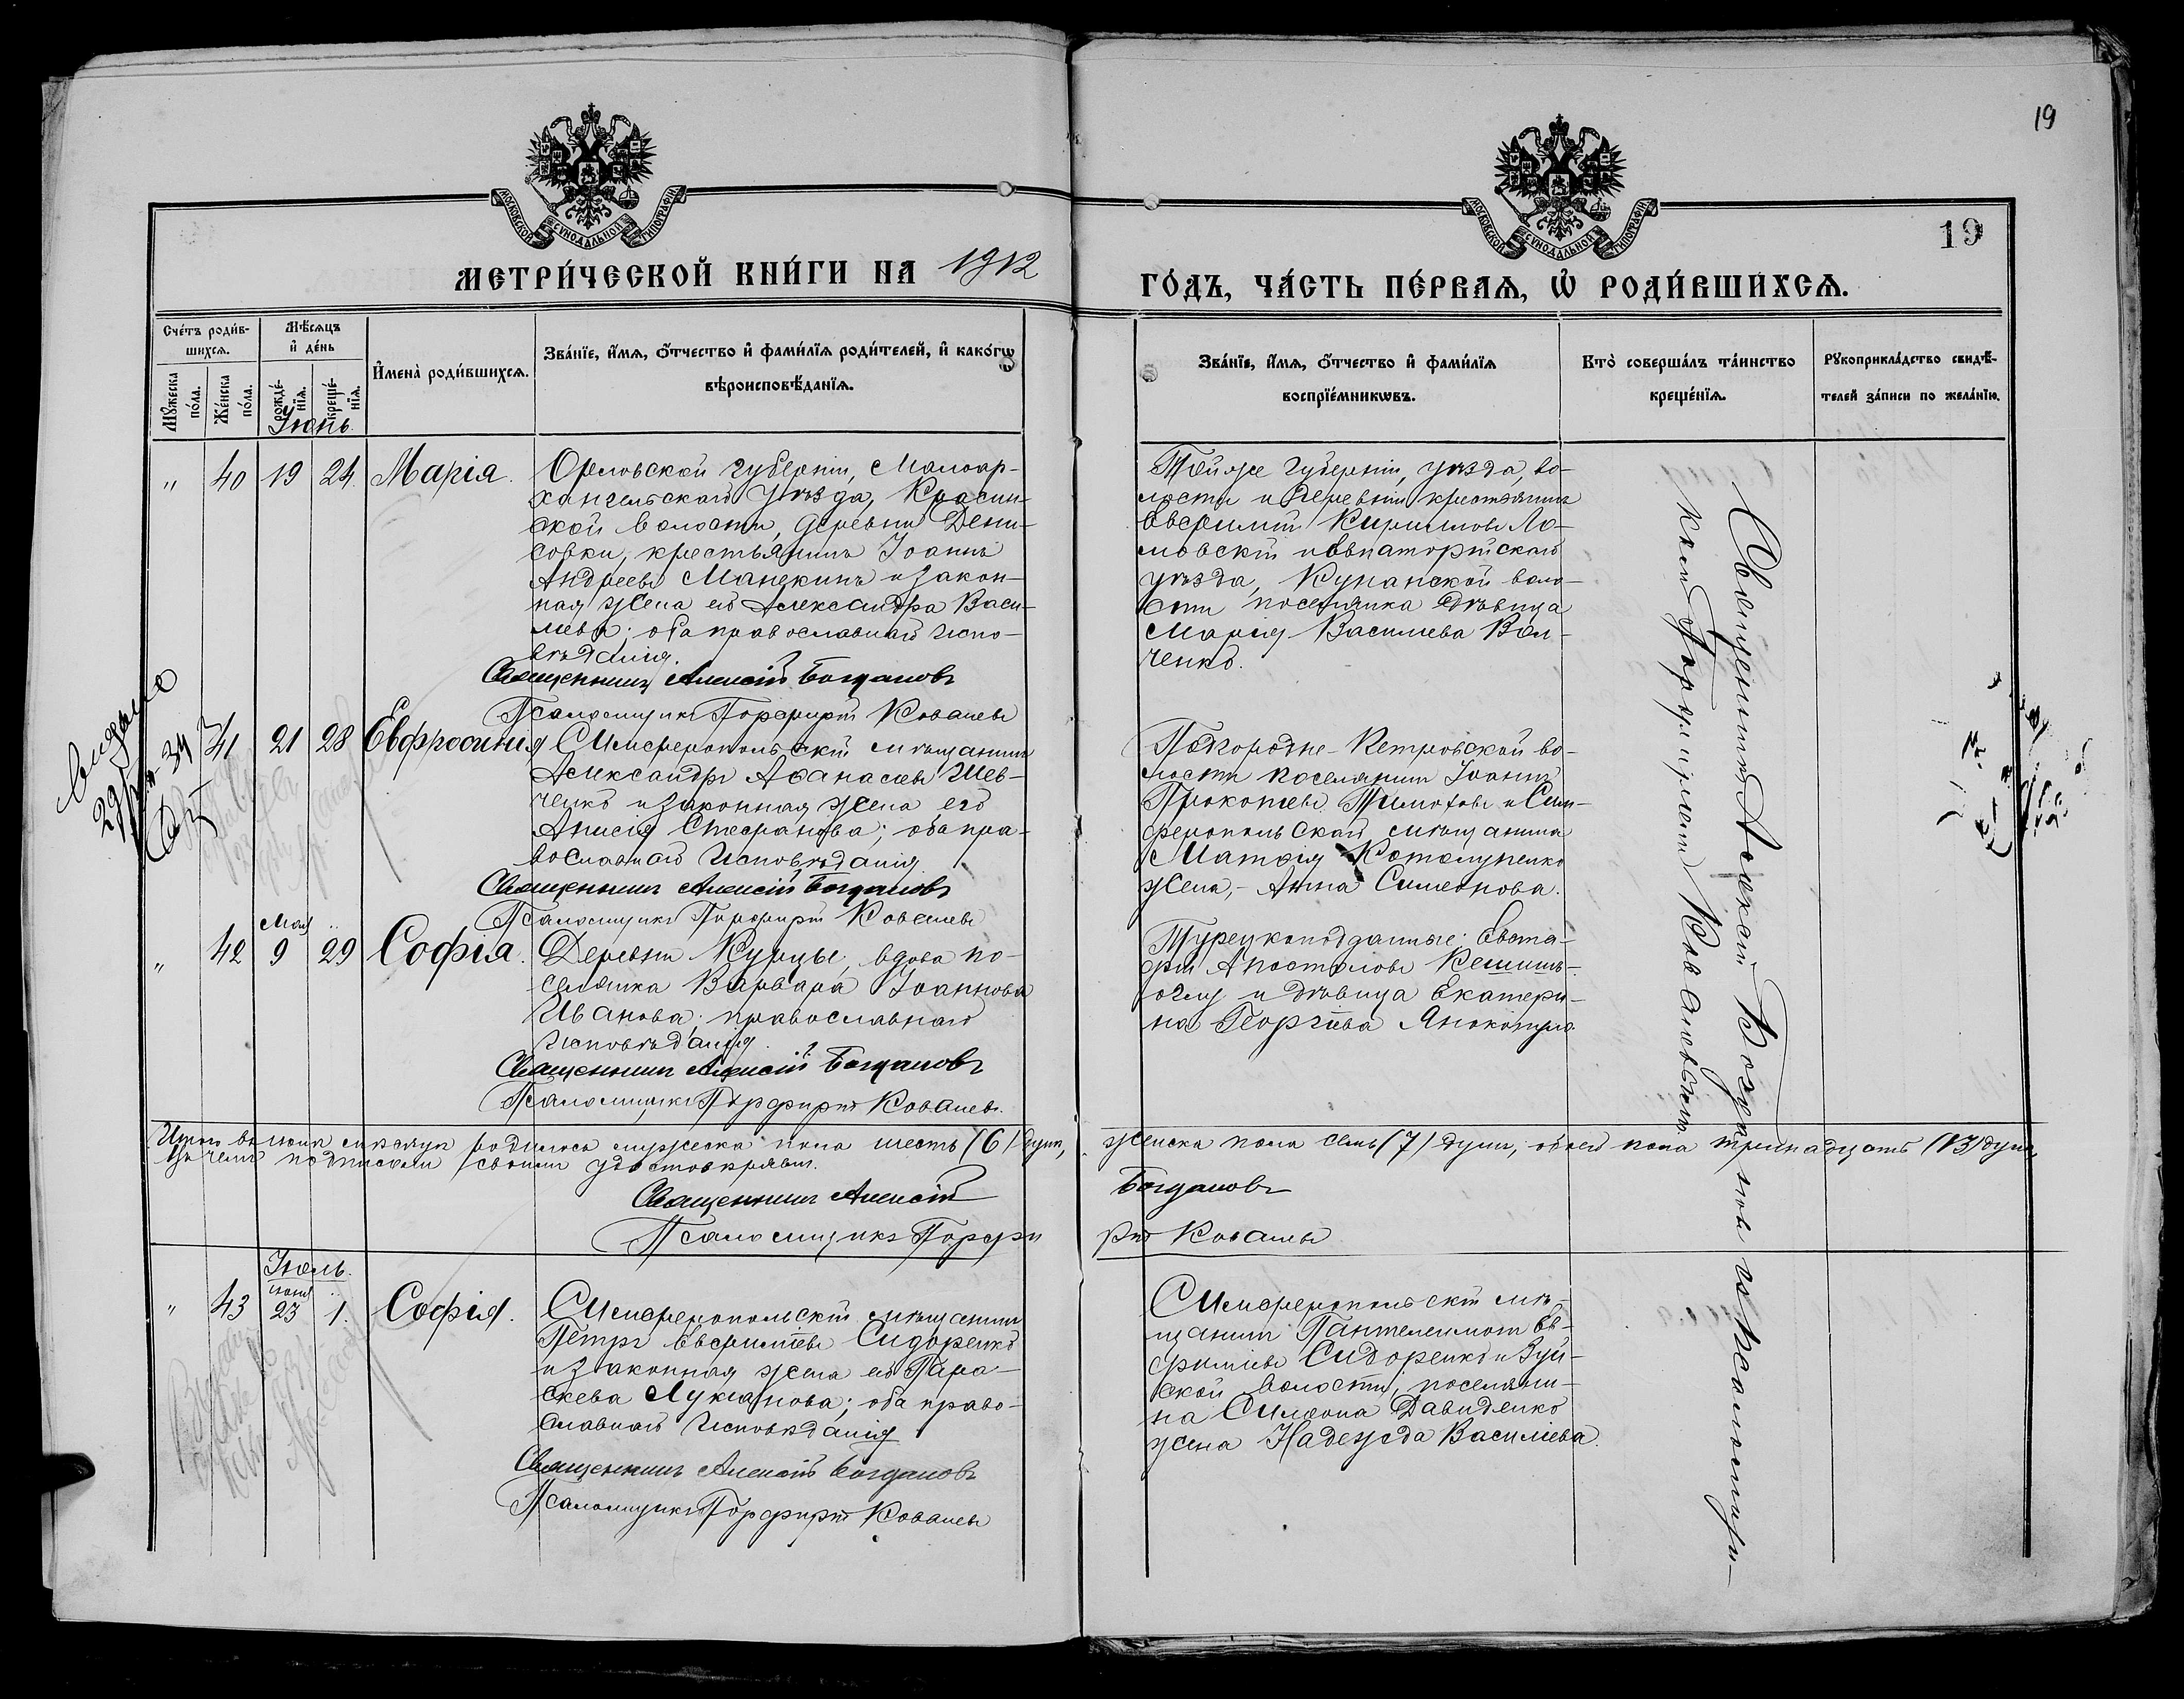 19
19
МОСКОВСКОЙ СѴНОДАЛЬНОЙ ТИПОГРАФІИ
МОСКОВСКОЙ СѴНОДАЛЬНОЙ ТИПОГРАФІИ
МЕТРИ́ЧЕСКОЙ КНИ́ГИ НА 1912
ГО́ДЪ, ЧА́СТЬ ПЕ́РВАЯ, Ѿ РОДИ́ВШИХСЯ.
Сче́тъ роди́в-
шихся.
Мꙋ́жеска
по́ла.
Же́нска
по́ла.
Мѣ́сяцъ
и҆ де́нь
рожде́-
нїя.
креще́-
нїя.
И҆мена̀ роди́вшихся.
Зва́нїе, и҆́мя, ѻ҆́тчество и҆ фами́лїя роди́телей, и҆ како́гѡ
вѣроисповѣ́данїя.
Зва́нїе, и҆́мя, ѻ҆́тчество и҆ фами́лїя
воспрїе́мникѡвъ.
Кто̀ соверша́лъ та́инство
креще́нїя.
Рꙋкоприкла́дство свидѣ́-
телей за́писи по жела́нїю.
Іюнь.
" 40 19 24. Марія.
Орловской губерніи, Малоар-
хангельскаго уѣзда,
ской волости, деревни Дени-
совки, крестьянинъ Іоаннъ
Андреевъ Манекинъ и закон-
ная жена его Александра Васи-
льева; оба православнаго испо-
вѣданія.
Священникъ Алексій Богдановъ
Псаломщикъ Порфирій Ковалевъ
Той же губерніи, уѣзда, во-
лости и деревни крестьянинъ
Евфимій Кирилловъ Ло-
мовскій и Евпаторійскаго
уѣзда, Курманской воло-
сти поселянка дѣвица
Марія Васильева Вол-
ченко.
Выдано
41 21 28 Евфросинія
Симферопольскій мѣщанинъ
Александръ Аѳанасіевъ Шев-
ченко и законная жена его
Анисія Стефанова; оба пра-
вославнаго исповѣданія
Священникъ Алексій Богдановъ
Псаломщикъ Порфирій Ковалевъ
Подгородне-Петровской во-
лости поселянинъ Іоаннъ
Прокопіевъ Тимоховъ и Сим-
феропольскаго мѣщанина
Матѳія
жена,- Анна Симеонова.
Мая
" 42 9 29 Софія.
Деревни Курцы, вдова по-
селянка Варвара Іоаннова
Иванова; православнаго
исповѣданія.
Священникъ Алексій Богдановъ
Псаломщикъ Порфирій Ковалевъ.
Турецкоподданные: Евста-
фій Апостоловъ Кешишъ-
оглу и дѣвица Екатери-
на Георгіева
Итого въ іюнѣ мѣсяцѣ родилось мужеска пола шесть (6) душъ,
женска пола семь (7) душъ, обоего пола тринадцать (13) душъ,
въ чемъ подписами своими удостовѣряемъ.
Священникъ Алексій Богдановъ
Псаломщикъ Порфирій Ковалевъ
Іюль.
іюня
" 43 23 1. Софія.
Симферопольскій мѣщанинъ
Петръ Евфиміевъ Сидоренко
и законная жена его Пара-
скева Лукіанова; оба право-
славнаго исповѣданія
Священникъ Алексій Богдановъ
Псаломщикъ Порфирій Ковалевъ
Симферопольскій мѣ-
щанинъ Пантелеимонъ Ев-
фиміевъ Сидоренко и Зуй-
ской волости, поселяни-
на Симеона Давиденко
жена Надежда Василіева.
Священникъ Алексій Богдановъ съ псаломщи-
комъ Порфиріемъ Ковалевымъ